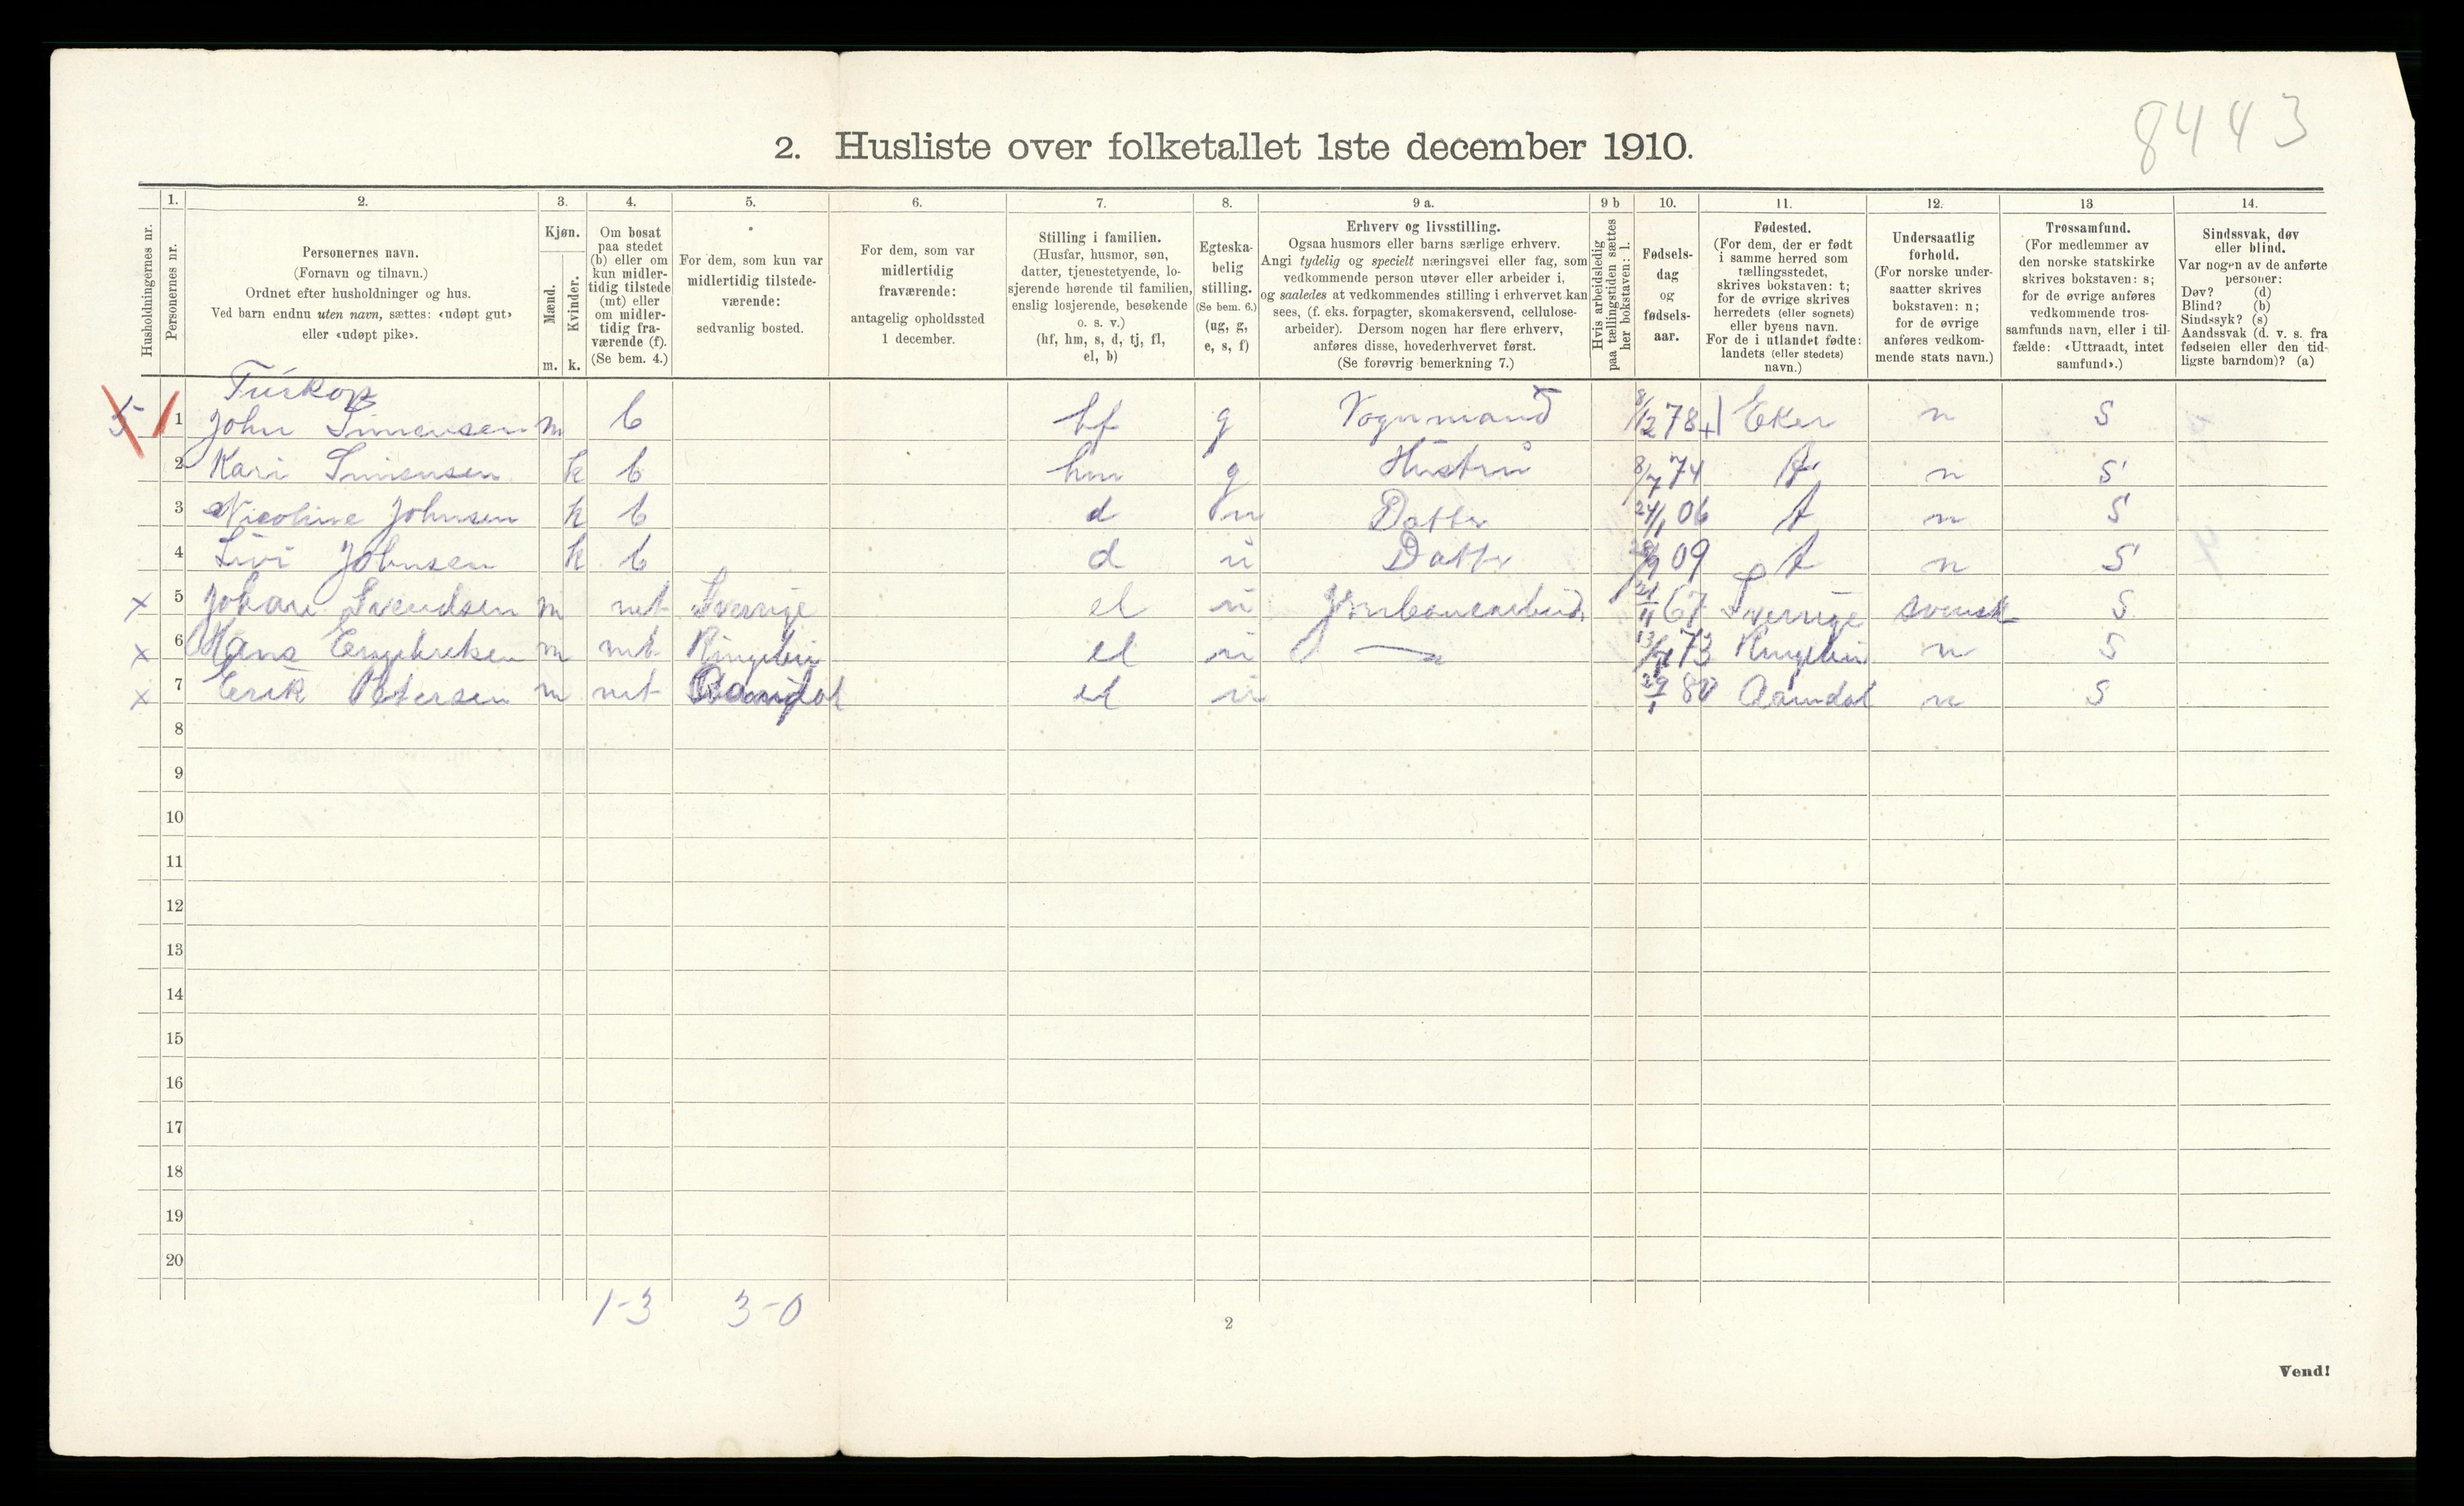 8443
2. Husliste over folketallet 1ste december 1910.
1. 2. 3. 4. 5. 6. 7. 8. 9 a. 9 b 10. 11. 12. 13 14.
Husholdningernes nr.
Personernes nr.
Personernes navn.
(Fornavn og tilnavn.)
Ordnet efter husholdninger og hus.
Ved barn endnu uten navn, sættes: «udøpt gut»
eller «udøpt pike».
Kjøn.
Mænd.
Kvinder.
m. k.
Om bosat
paa stedet
(b) eller om
kun midler-
tidig tilstede
(mt) eller
om midler-
tidig fra-
værende (f).
(Se bem. 4.)
For dem, som kun var
midlertidig tilstede-
værende:
sedvanlig bosted.
For dem, som var
midlertidig
fraværende:
antagelig opholdssted
1 december.
Stilling i familien.
(Husfar, husmor, søn,
datter, tjenestetyende, lo-
sjerende hørende til familien,
enslig losjerende, besøkende
o. s. v.)
(hf, hm, s, d, tj, fl,
el, b)
Egteska-
belig
stilling.
(Se bem. 6.)
(ug, g,
e, s, f)
Erhverv og livsstilling.
Ogsaa husmors eller barns særlige erhverv.
Angi tydelig og specielt næringsvei eller fag, som
vedkommende person utøver eller arbeider i,
og saaledes at vedkommendes stilling i erhvervet kan
sees, (f. eks. forpagter, skomakersvend, cellulose-
arbeider). Dersom nogen har flere erhverv,
anføres disse, hovederhvervet først.
(Se forøvrig bemerkning 7.)
Hvis arbeidsledig
paa tællingstiden sættes
her bokstaven: l.
Fødsels-
dag
og
fødsels-
aar.
Fødested.
(For dem, der er født
i samme herred som
tællingsstedet,
skrives bokstaven: t;
for de øvrige skrives
herredets (eller sognets)
eller byens navn.
For de i utlandet fødte:
landets (eller stedets)
navn.)
Undersaatlig
forhold.
(For norske under-
saatter skrives
bokstaven: n;
for de øvrige
anføres vedkom-
mende stats navn.)
Trossamfund.
(For medlemmer av
den norske statskirke
skrives bokstaven: s;
for de øvrige anføres
vedkommende tros-
samfunds navn, eller i til-
fælde: «Uttraadt, intet
samfund».)
Sindssvak, døv
eller blind.
Var nogen av de anførte
personer:
Døv? (d)
Blind? (b)
Sindssyk? (s)
Aandssvak (d. v. s. fra
fødselen eller den tid-
ligste barndom)? (a)
Turkop
5 1 John Simensen m b hf g Vognmand 8/12 78 Eker n S
2 Kari Simensen k b hm g Hustru 8/7 74 t n S
3 Nicoline Johnsen k b d u Datter 24/1 06 t n S
4 Livi Johnsen k b d u Datter 09 t n S
x 5 Johan Svendsen m mt Sverrige el u Jernbanearbeid. 21/11 67 Sverrige svensk S
x 6 Hans Engebretsen m mt Ringebu el u 13/7 73 Ringebu n S
x 7 Erik Petersen m mt el u 29/1 80 Aamdal n S
8
9
10
11
12
13
14
15
16
17
18
19
20
1-3 3-0
2
Vend!